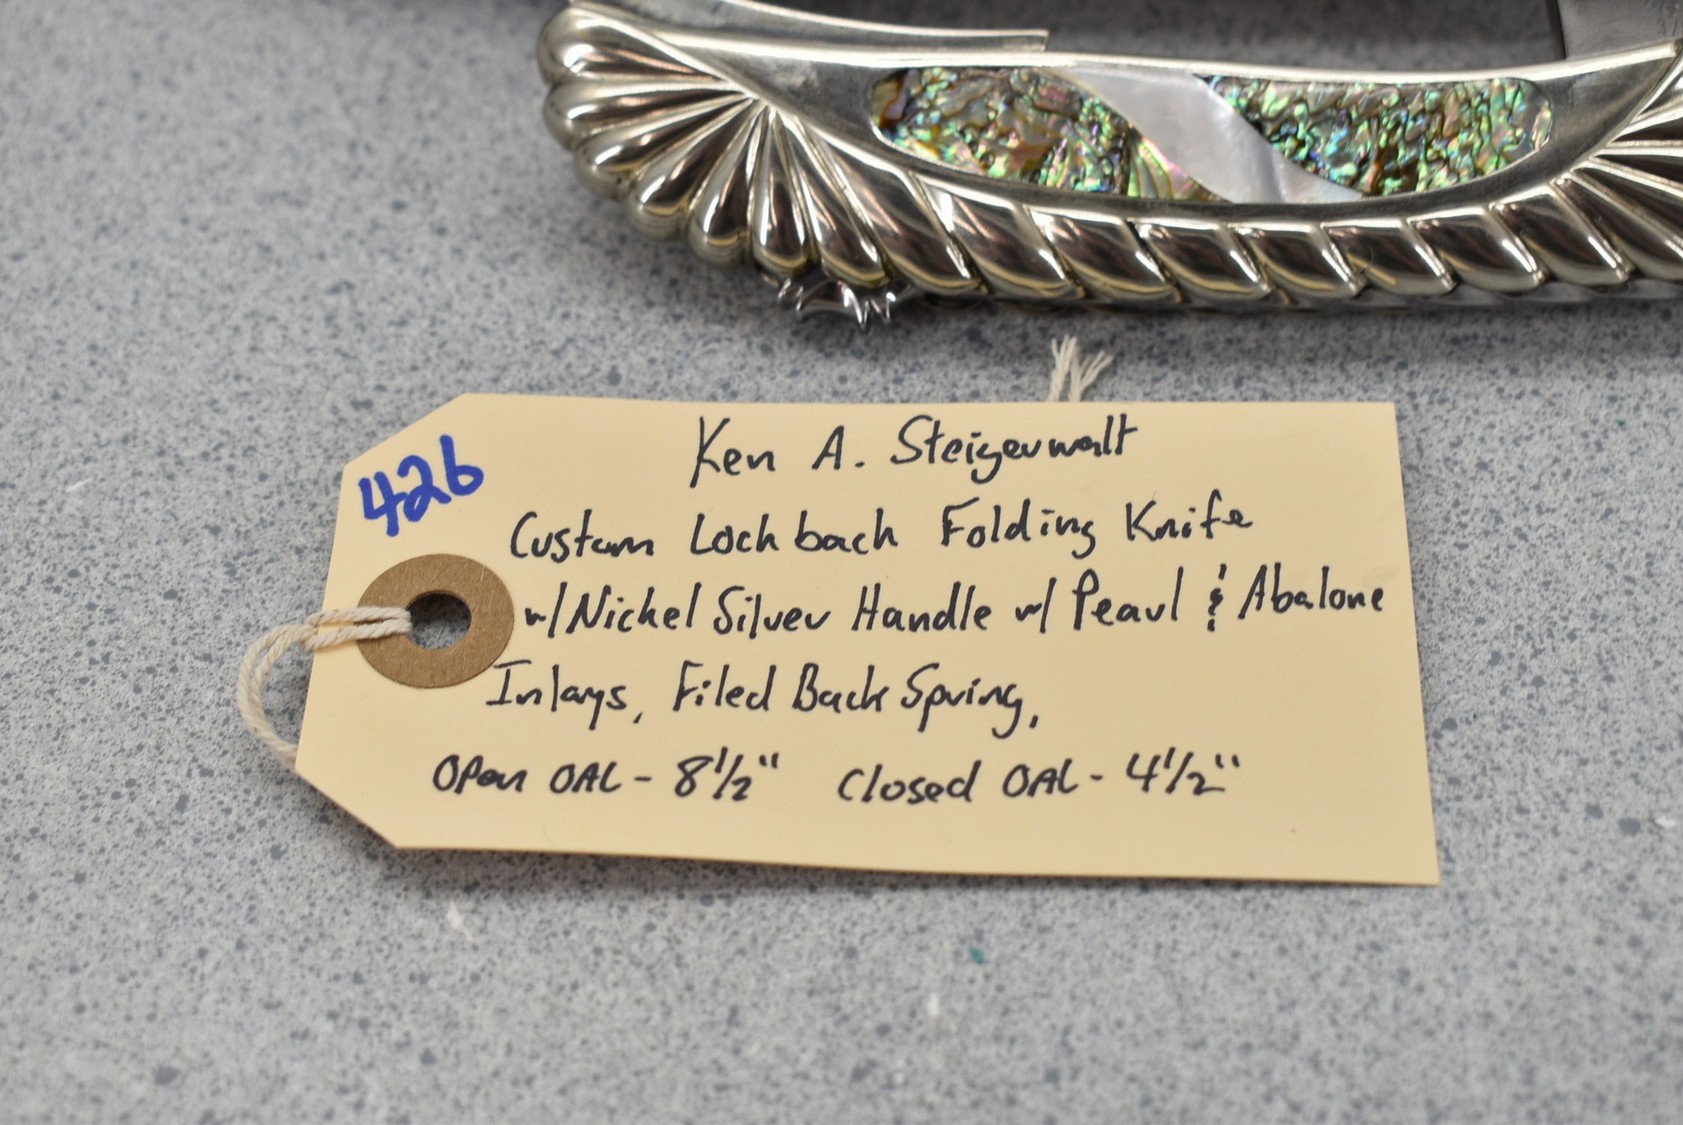 426
Ken A. Steigerwalt
Custom Lockback Folding Knife
w/Nickel Silver Handle w/ Pearl & Abalone
Inlays, Filed Back Spring,
Open OAL - 8 1/2" Closed OAL - 4 1/2"